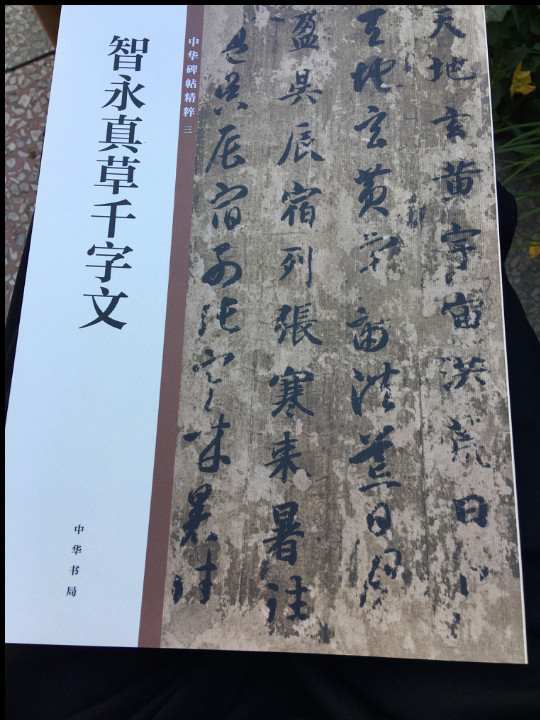 天地玄黄宇宙洪荒日月
天地玄黄宇宙洪荒日月
盈昃辰宿列張寒来暑往
盈昃辰宿列張寒来暑往
中华碑帖精粹 三
智永真草千字文
中华书局